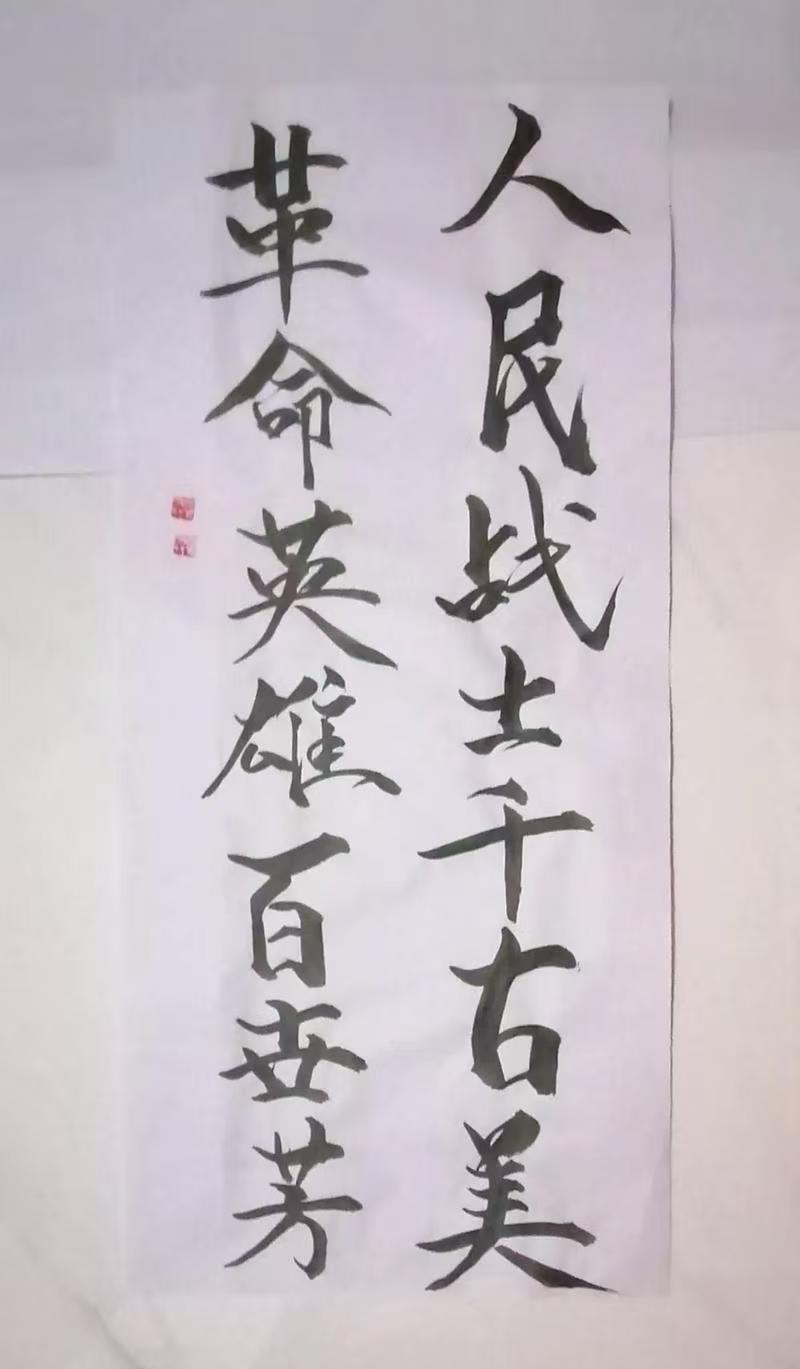 人民战士千古美
革命英雄百世芳